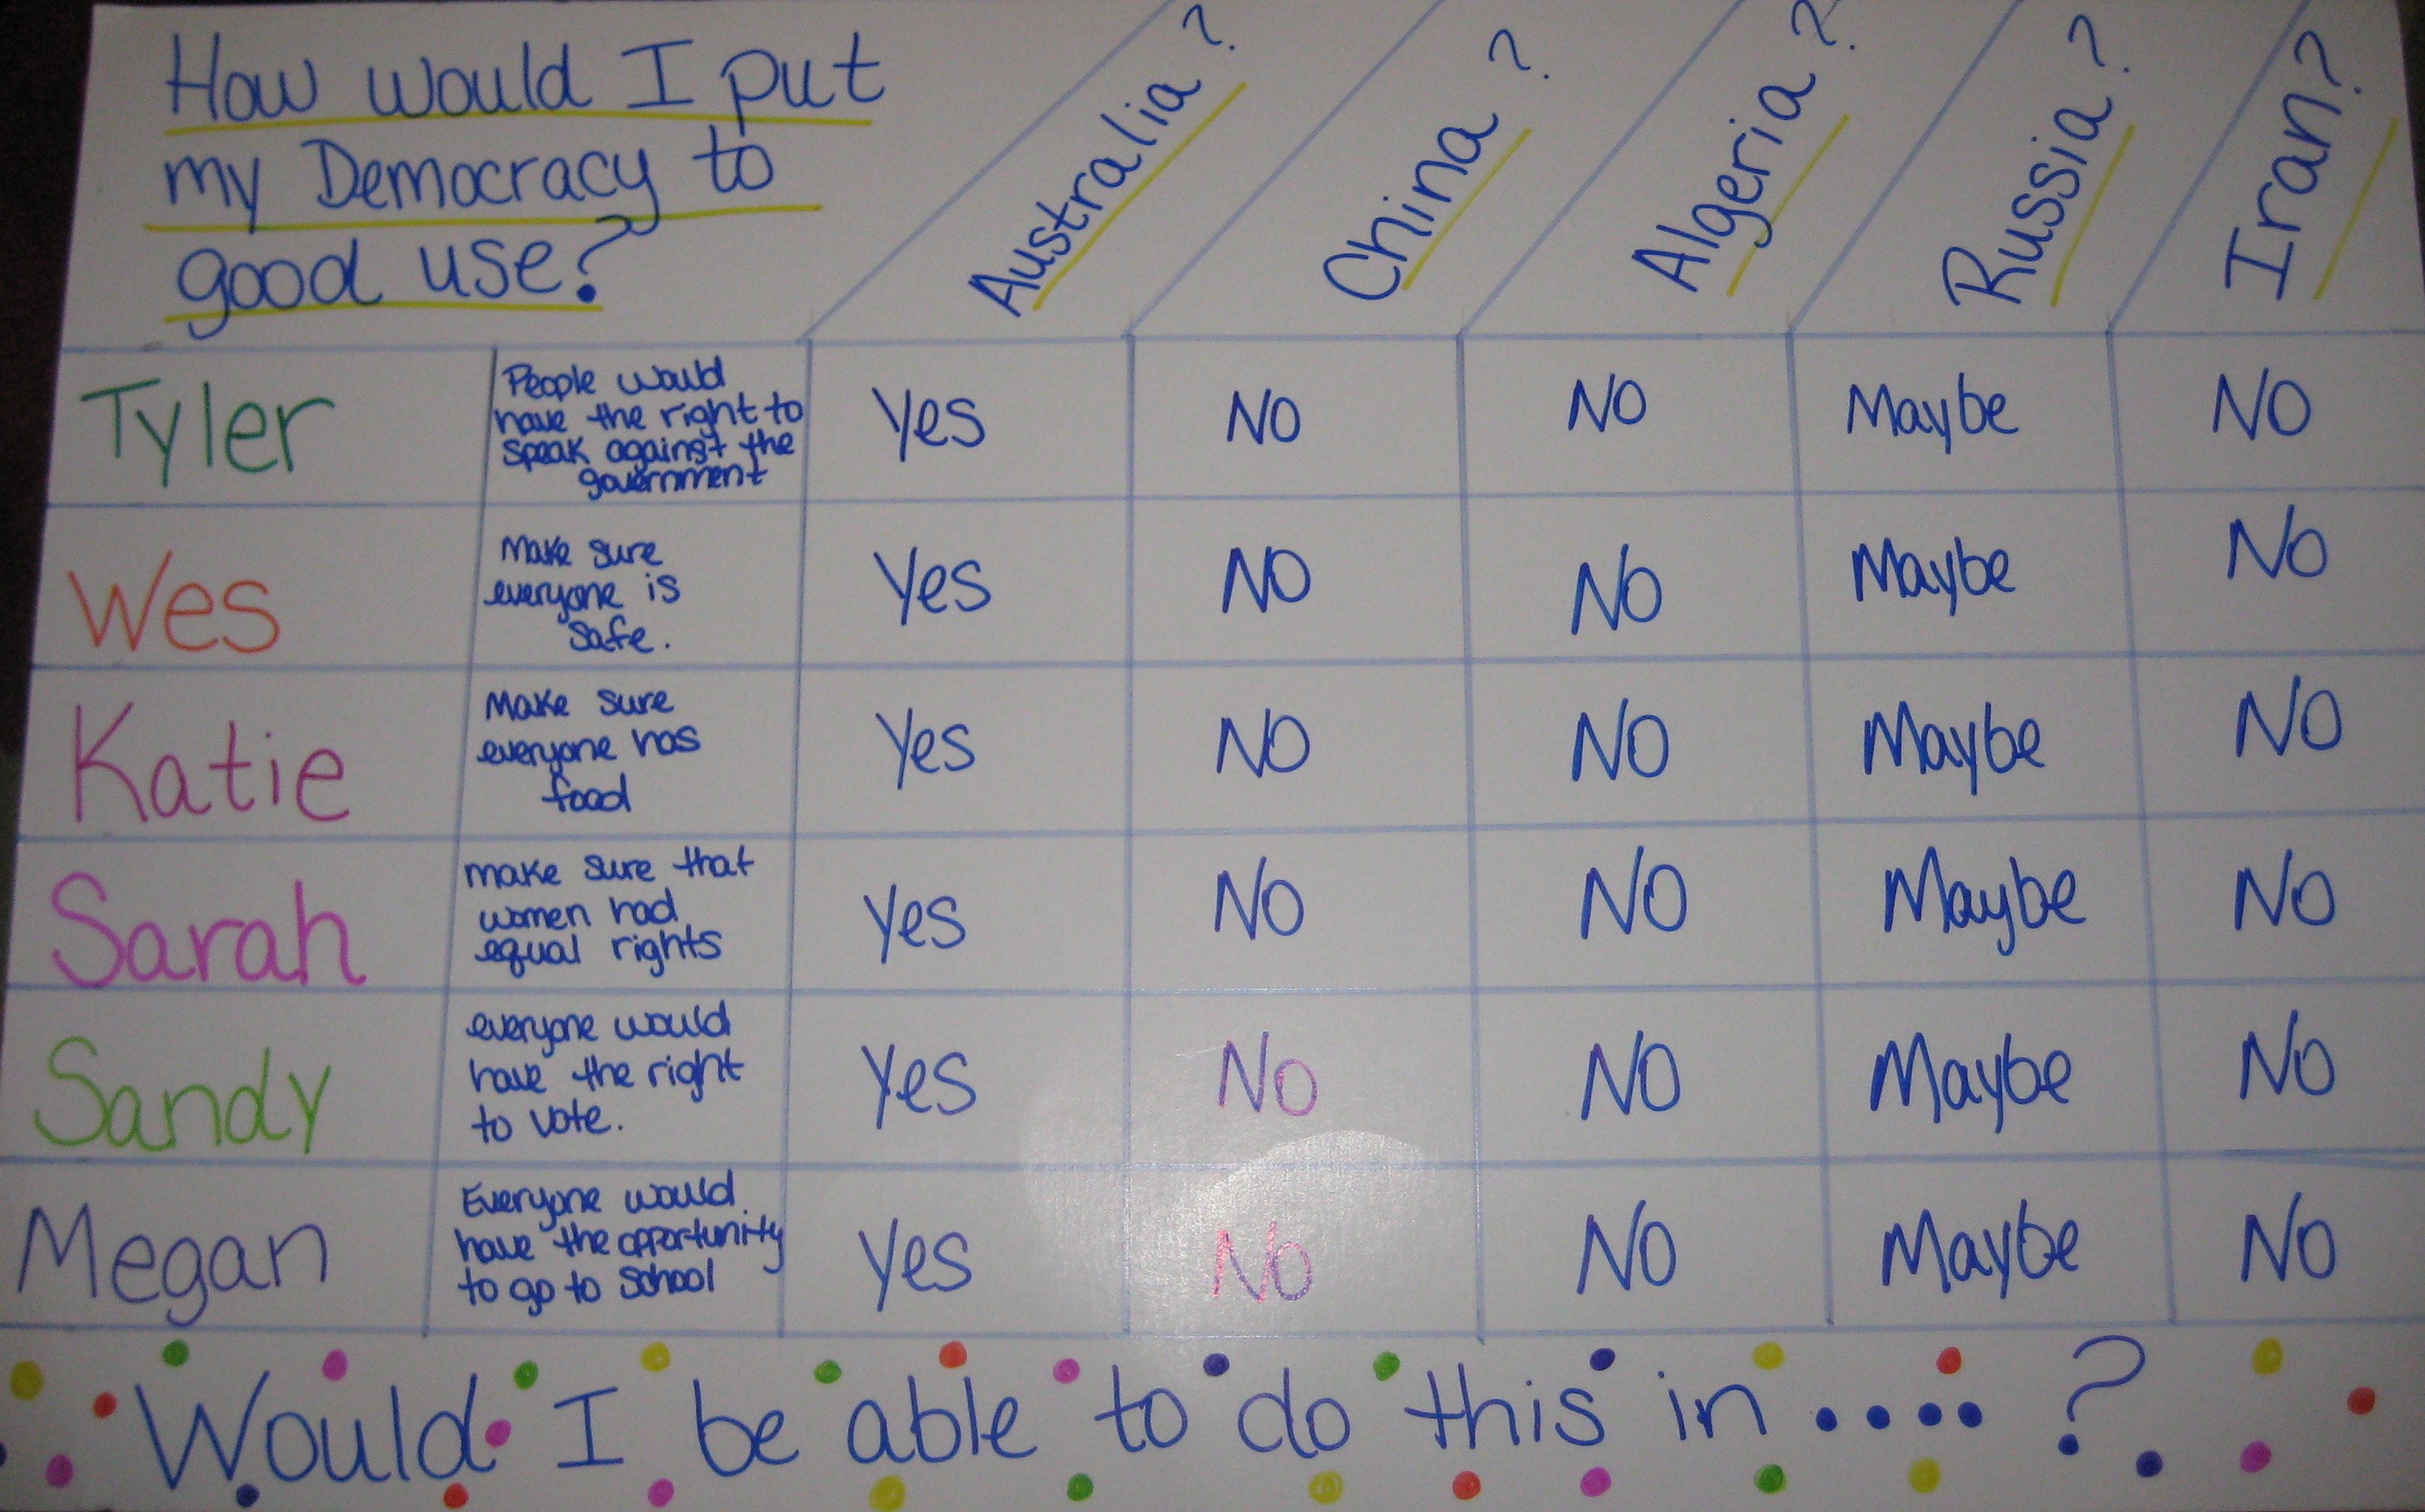 How would I put
my Democracy to
good use?
Australia?
China?
Algeria?
Russia?
Iran?
Tyler
People would
have the right to
speak against the
government
Yes
NO
NO
Maybe
NO
Wes
Make sure
everyone is
safe.
Yes
NO
NO
Maybe
NO
Katie
Make sure
everyone has
food
Yes
NO
NO
Maybe
NO
Sarah
make sure that
women had
equal rights
Yes
NO
NO
Maybe
NO
Sandy
everyone would
have the right
to vote.
Yes
NO
NO
Maybe
NO
Megan
Everyone would
have the opportunity
to go to school
Yes
NO
NO
Maybe
NO
Would I be able to do this in ....?